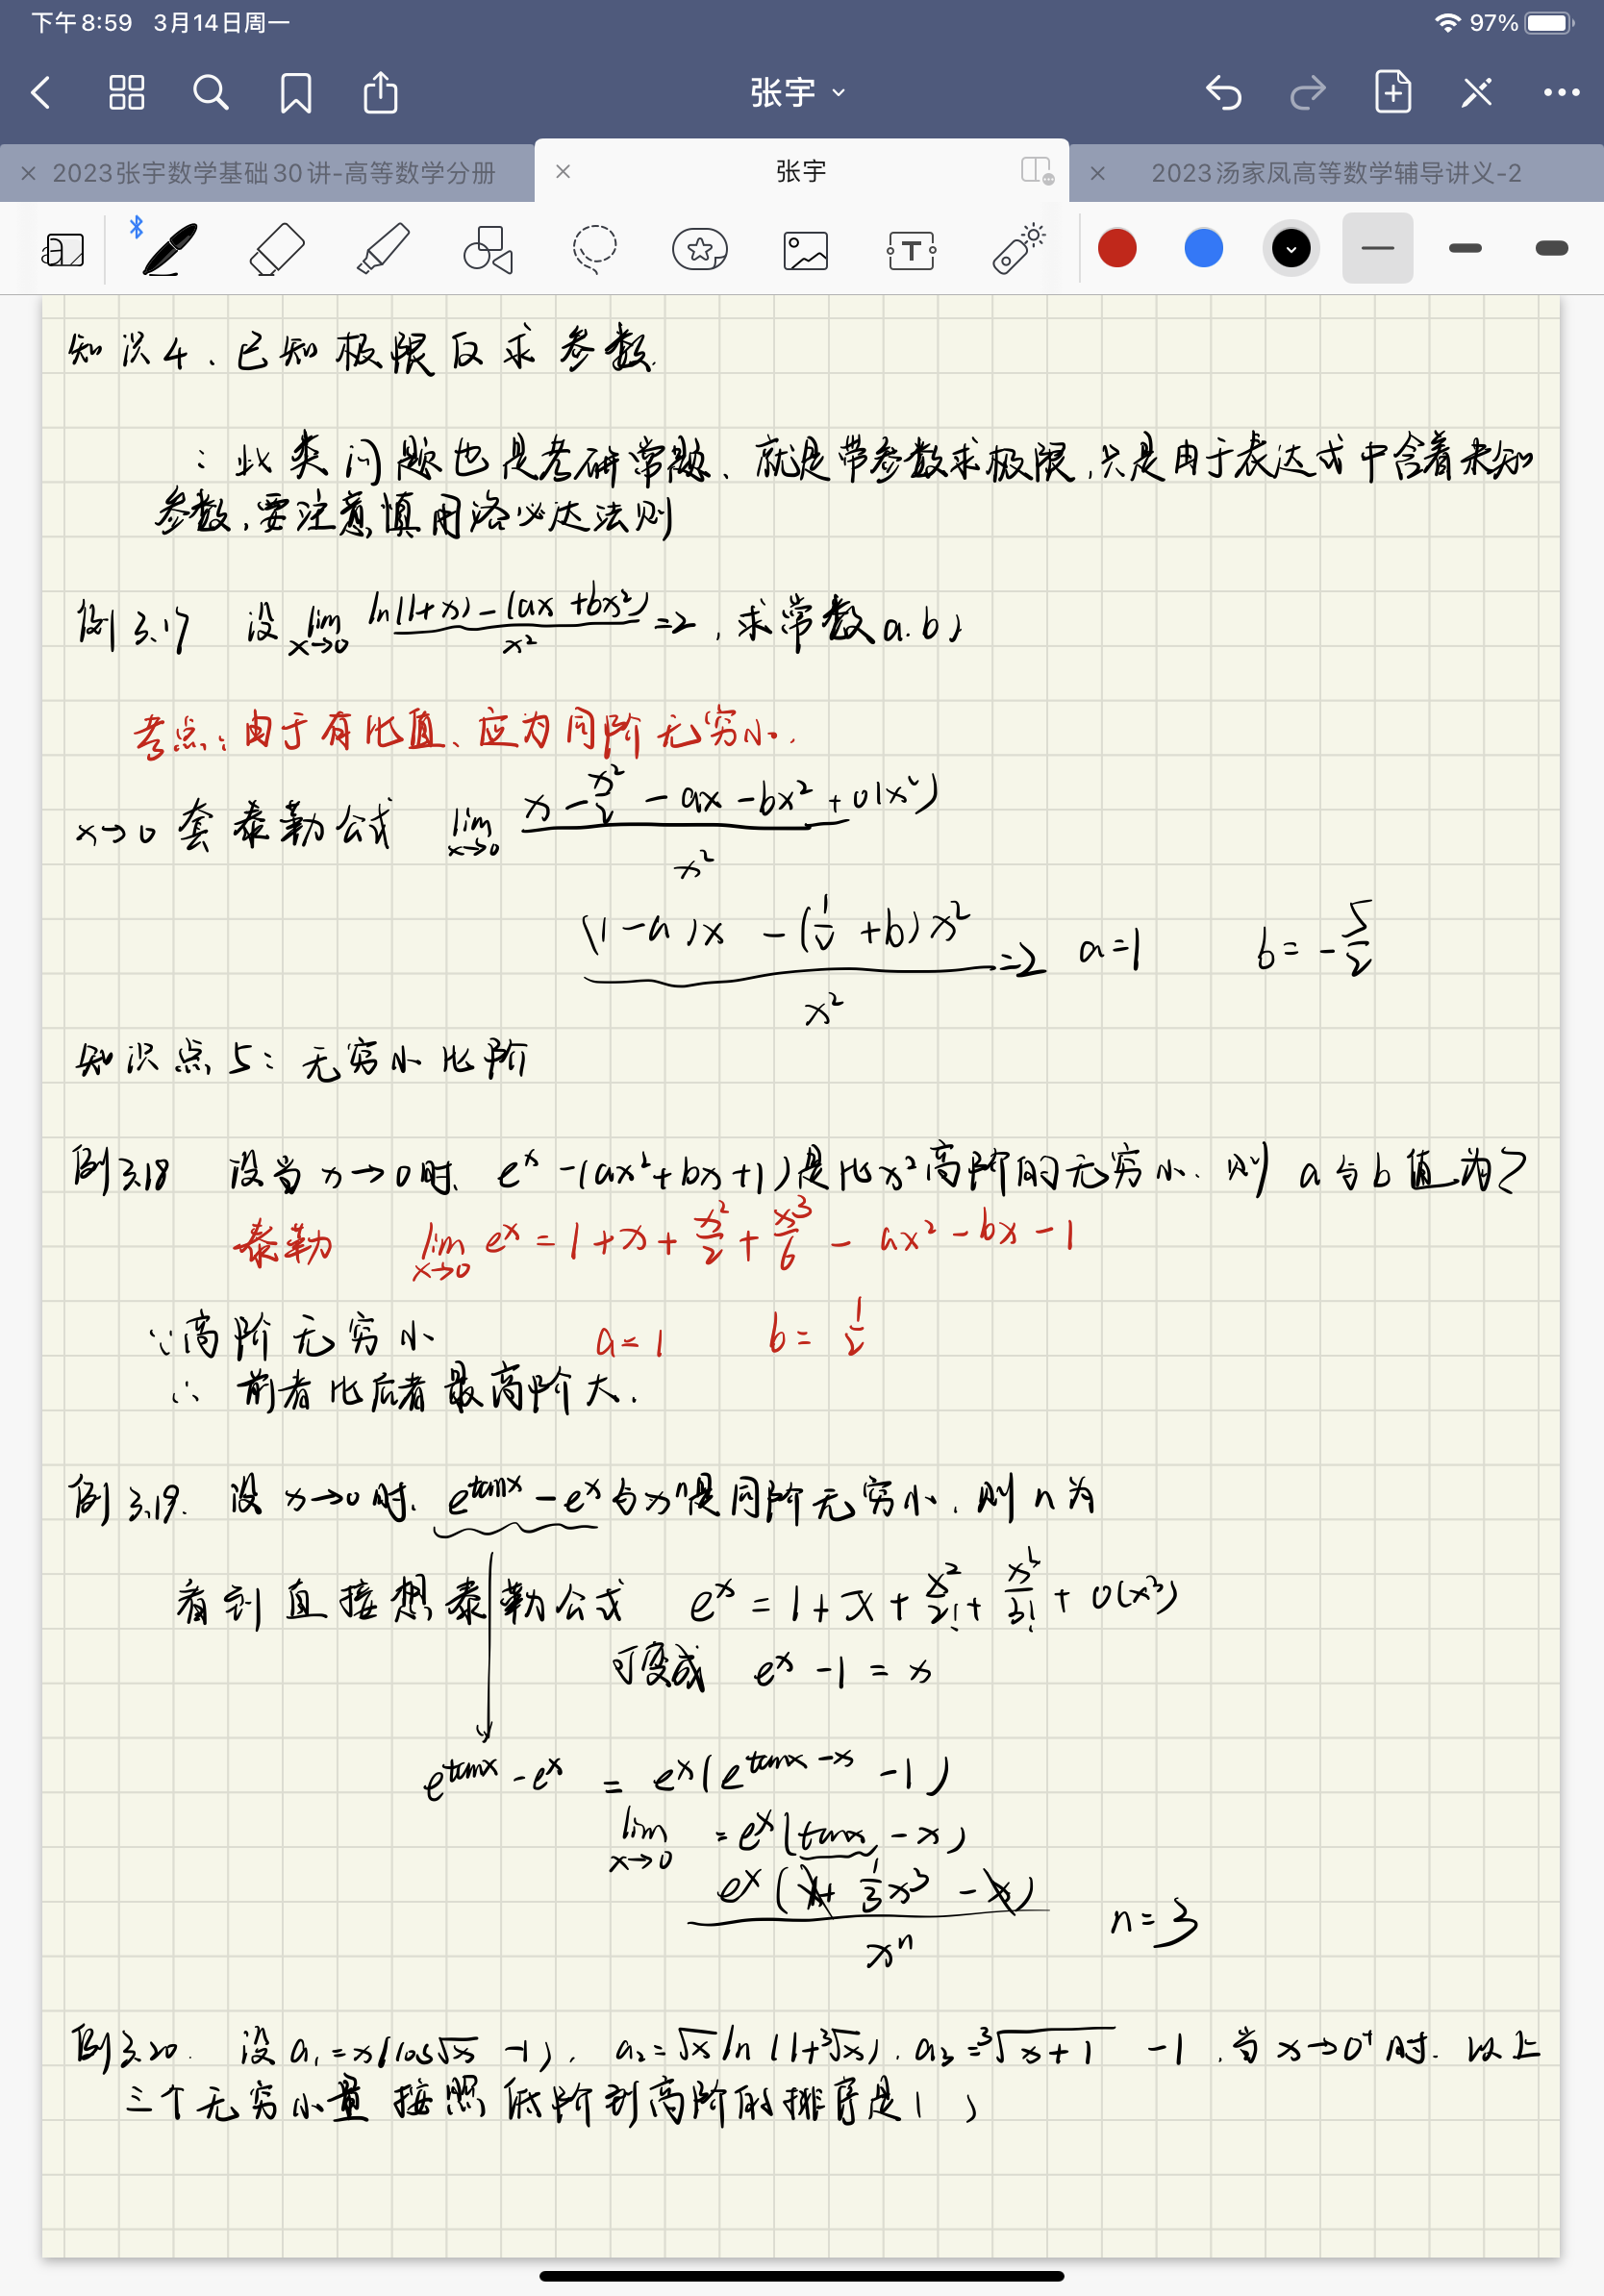 下午8:59 3月14日周一 97%
张宇
2023张宇数学基础30讲-高等数学分册 张宇 2023汤家凤高等数学辅导讲义-2
知识4、已知极限反求参数.
：此类问题也是考研常题、就是带参数求极限,只是由于表达式中含着未知
参数,要注意慎用洛必达法则
例3.17 设 lim x→0 ln(1+x)-(ax+bx²)/x² =2,求常数a.b,
考点:由于有比值、应为同阶无穷小.
x→0 套泰勒公式 lim x→0 x-x²/2-ax-bx²+o(x²)/x²
(1-a)x-(1/2+b)x²/x² =2 a=1 b=-5/2
知识点5:无穷小比阶
例3.18 设当x→0时. e^x-(ax²+bx+1)是比x²高阶的无穷小.则 a与b值为?
泰勒 lim x→0 e^x=1+x+x²/2+x³/6-ax²-bx-1
∵高阶无穷小 a=1 b=1/2
∴ 前者比后者最高阶大.
例3.19. 设x→0时. e^tanx-e^x与x^n是同阶无穷小.则n为
看到直接想泰勒公式 e^x=1+x+x²/2!+x³/3!+o(x³)
可变成 e^x-1=x
e^tanx-e^x = e^x(e^tanx-x -1)
lim x→0 =e^x(tanx-x)
e^x(x+1/3x³-x)/x^n n=3
例3.20. 设a₁=x(cos√x-1). a₂=√x ln(1+³√x). a₃=³√x+1 -1 .当x→0⁺时. 以上
三个无穷小量按照低阶到高阶的排序是( )